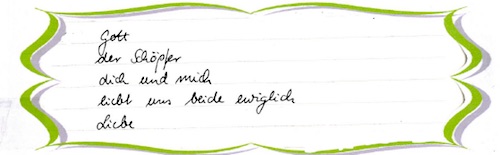 Gott
der Schöpfer
dich und mich
liebt uns beide ewiglich
Liebe